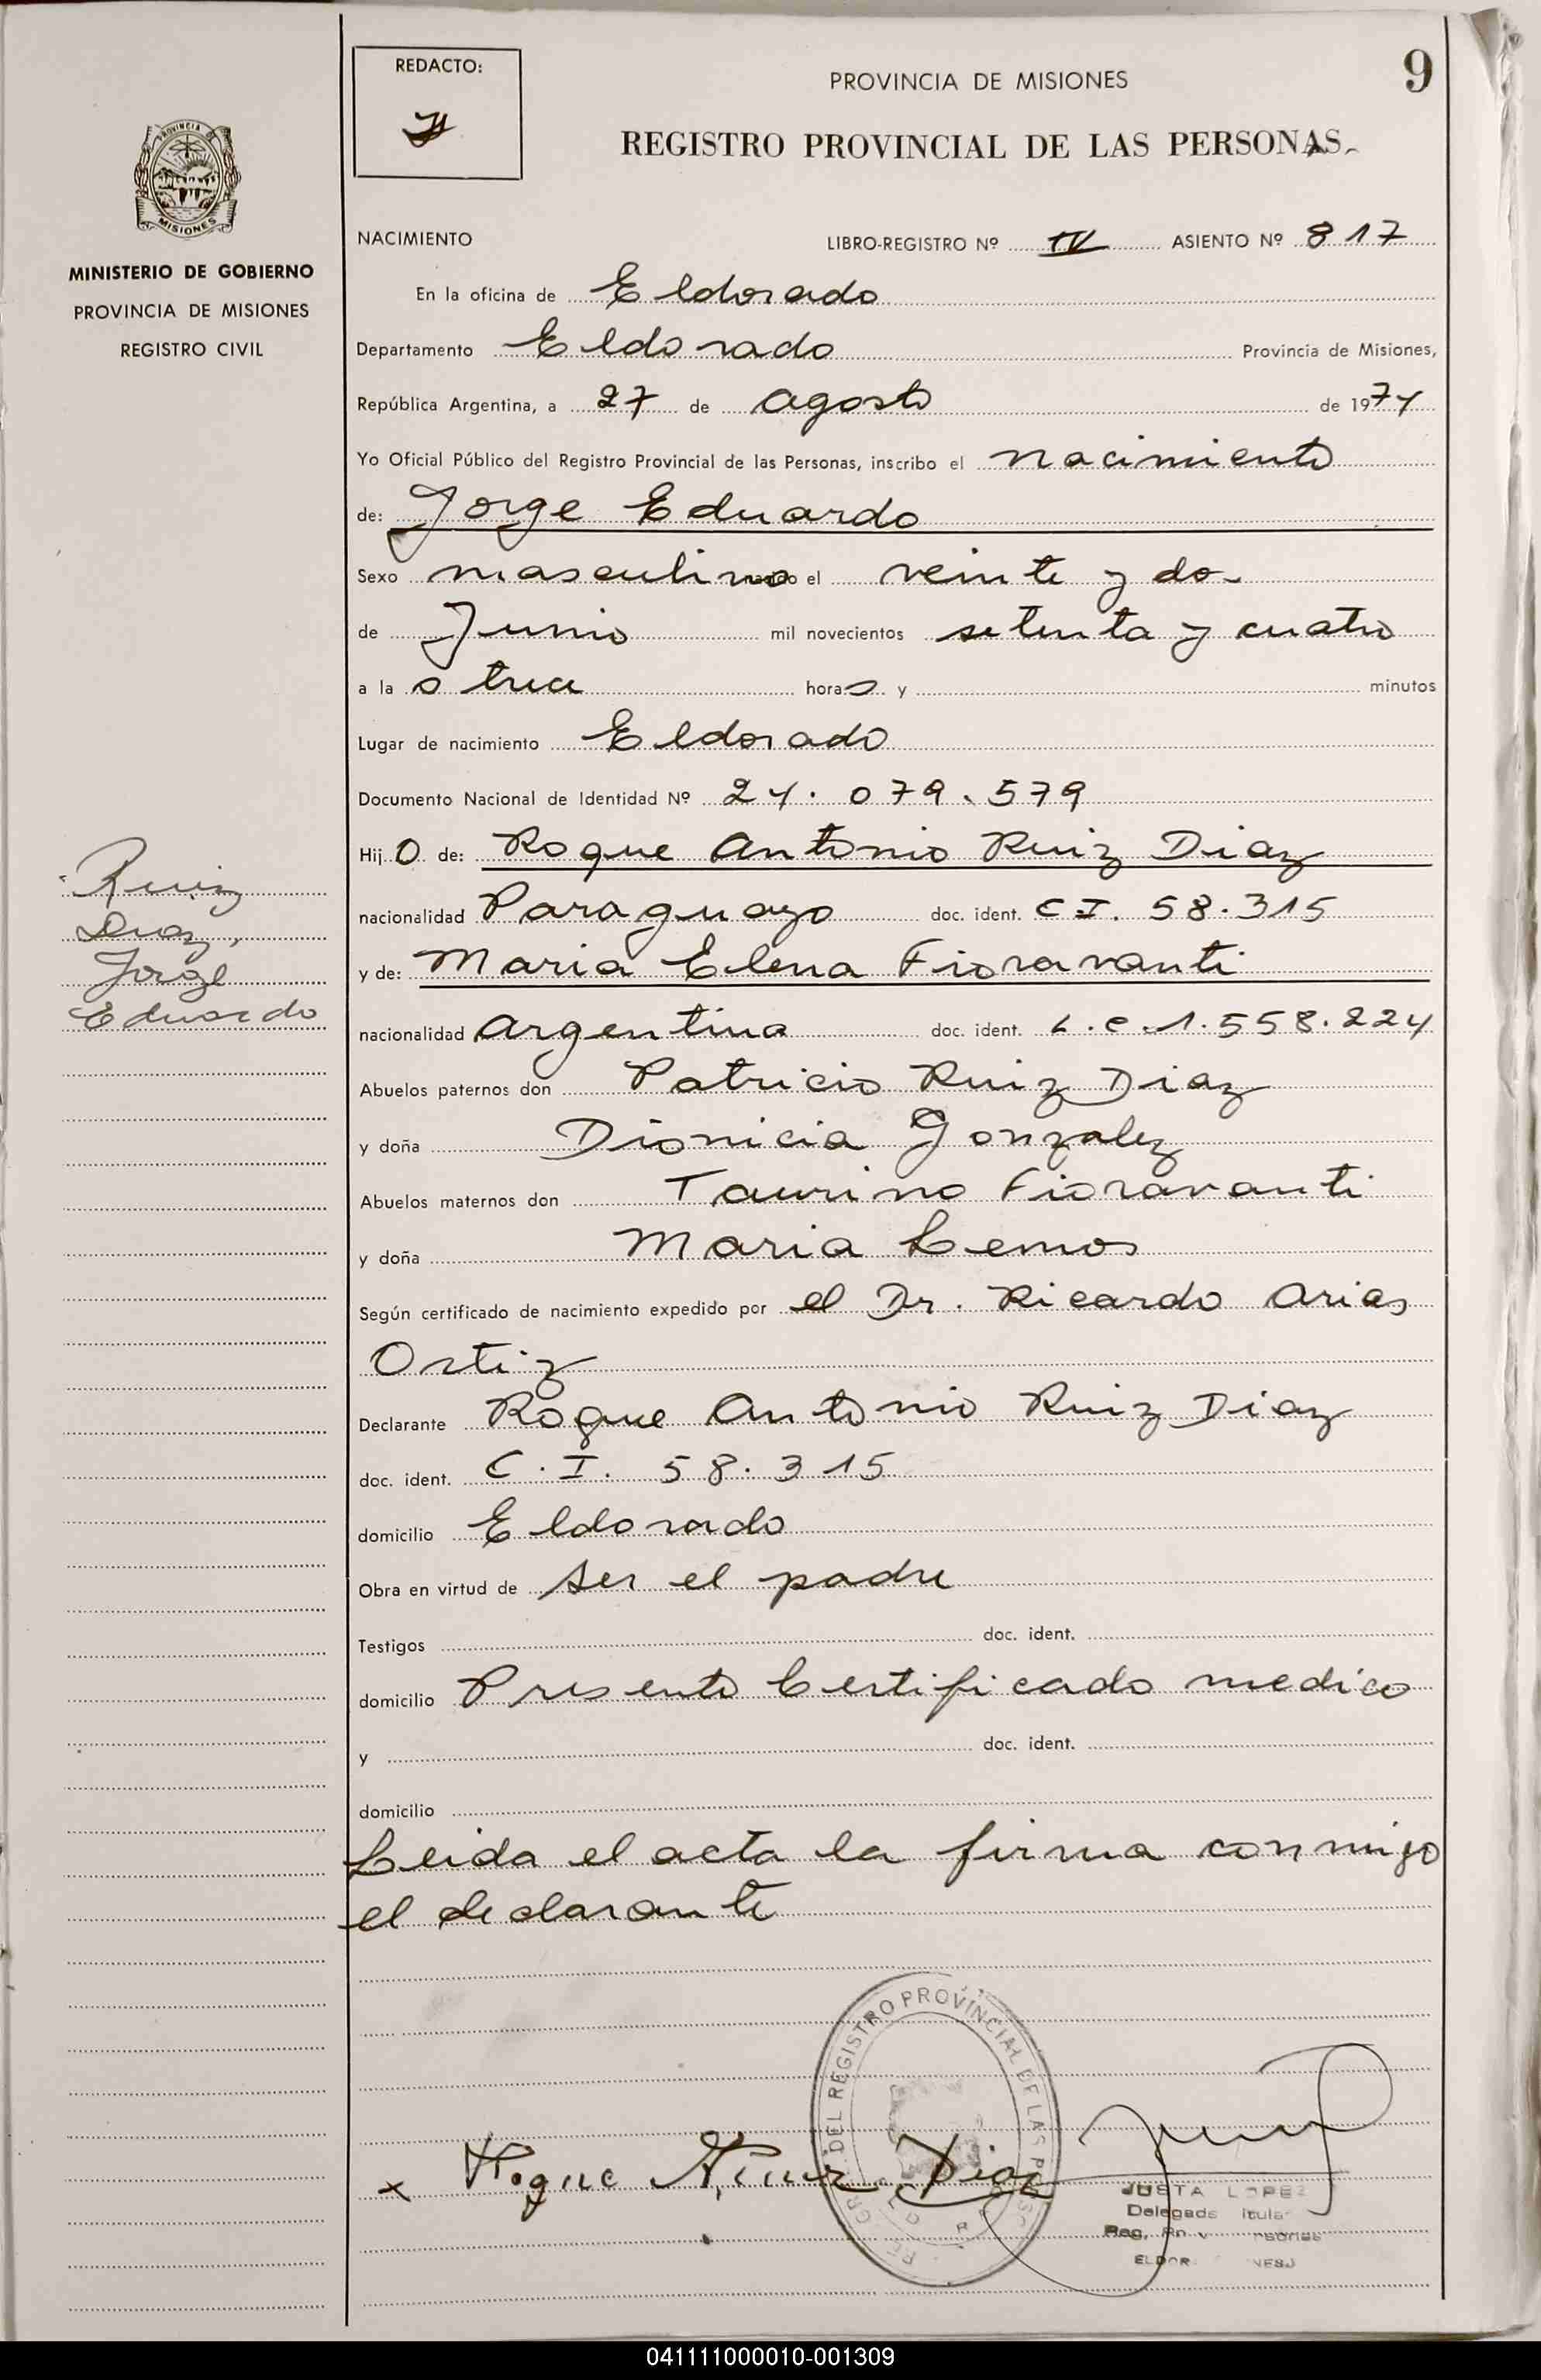 REDACTO:
PROVINCIA DE MISIONES
9
REGISTRO PROVINCIAL DE LAS PERSONAS
PROVINCIA
MISIONES
MINISTERIO DE GOBIERNO
PROVINCIA DE MISIONES
REGISTRO CIVIL
NACIMIENTO LIBRO-REGISTRO Nº IV ASIENTO Nº 817
En la oficina de Eldorado
Departamento Eldorado Provincia de Misiones,
República Argentina, a 27 de agosto de 1974
Yo Oficial Público del Registro Provincial de las Personas, inscribo el nacimiento
de: Jorge Eduardo
Sexo masculino nacido el veinte y dos
de Junio mil novecientos setenta y cuatro
a la s trece horas y minutos
Lugar de nacimiento Eldorado
Documento Nacional de Identidad Nº 24.079.579
Hijo de: Roque Antonio Ruiz Diaz
nacionalidad Paraguayo doc. ident. C I. 58.315
y de: Maria Elena Fioravanti
nacionalidad argentina doc. ident. L.C.1.558.224
Abuelos paternos don Patricio Ruiz Diaz
y doña Dionicia Gonzalez
Abuelos maternos don Taurino Fioravanti
y doña Maria Lemos
Según certificado de nacimiento expedido por el Dr. Ricardo Arias
Ortiz
Declarante Roque Antonio Ruiz Diaz
doc. ident. C. I. 58.315
domicilio Eldorado
Obra en virtud de ser el padre
Testigos doc. ident.
domicilio Presento Certificado medico
y doc. ident.
domicilio
Leida el acta la firma conmigo
el declarante
Ruiz
Diaz,
Jorge
Eduardo
DEL REGISTRO PROVINCIAL DE LAS
x Roque A. Ruiz Diaz
JUSTA LOPEZ
Delegada
041111000010-001309